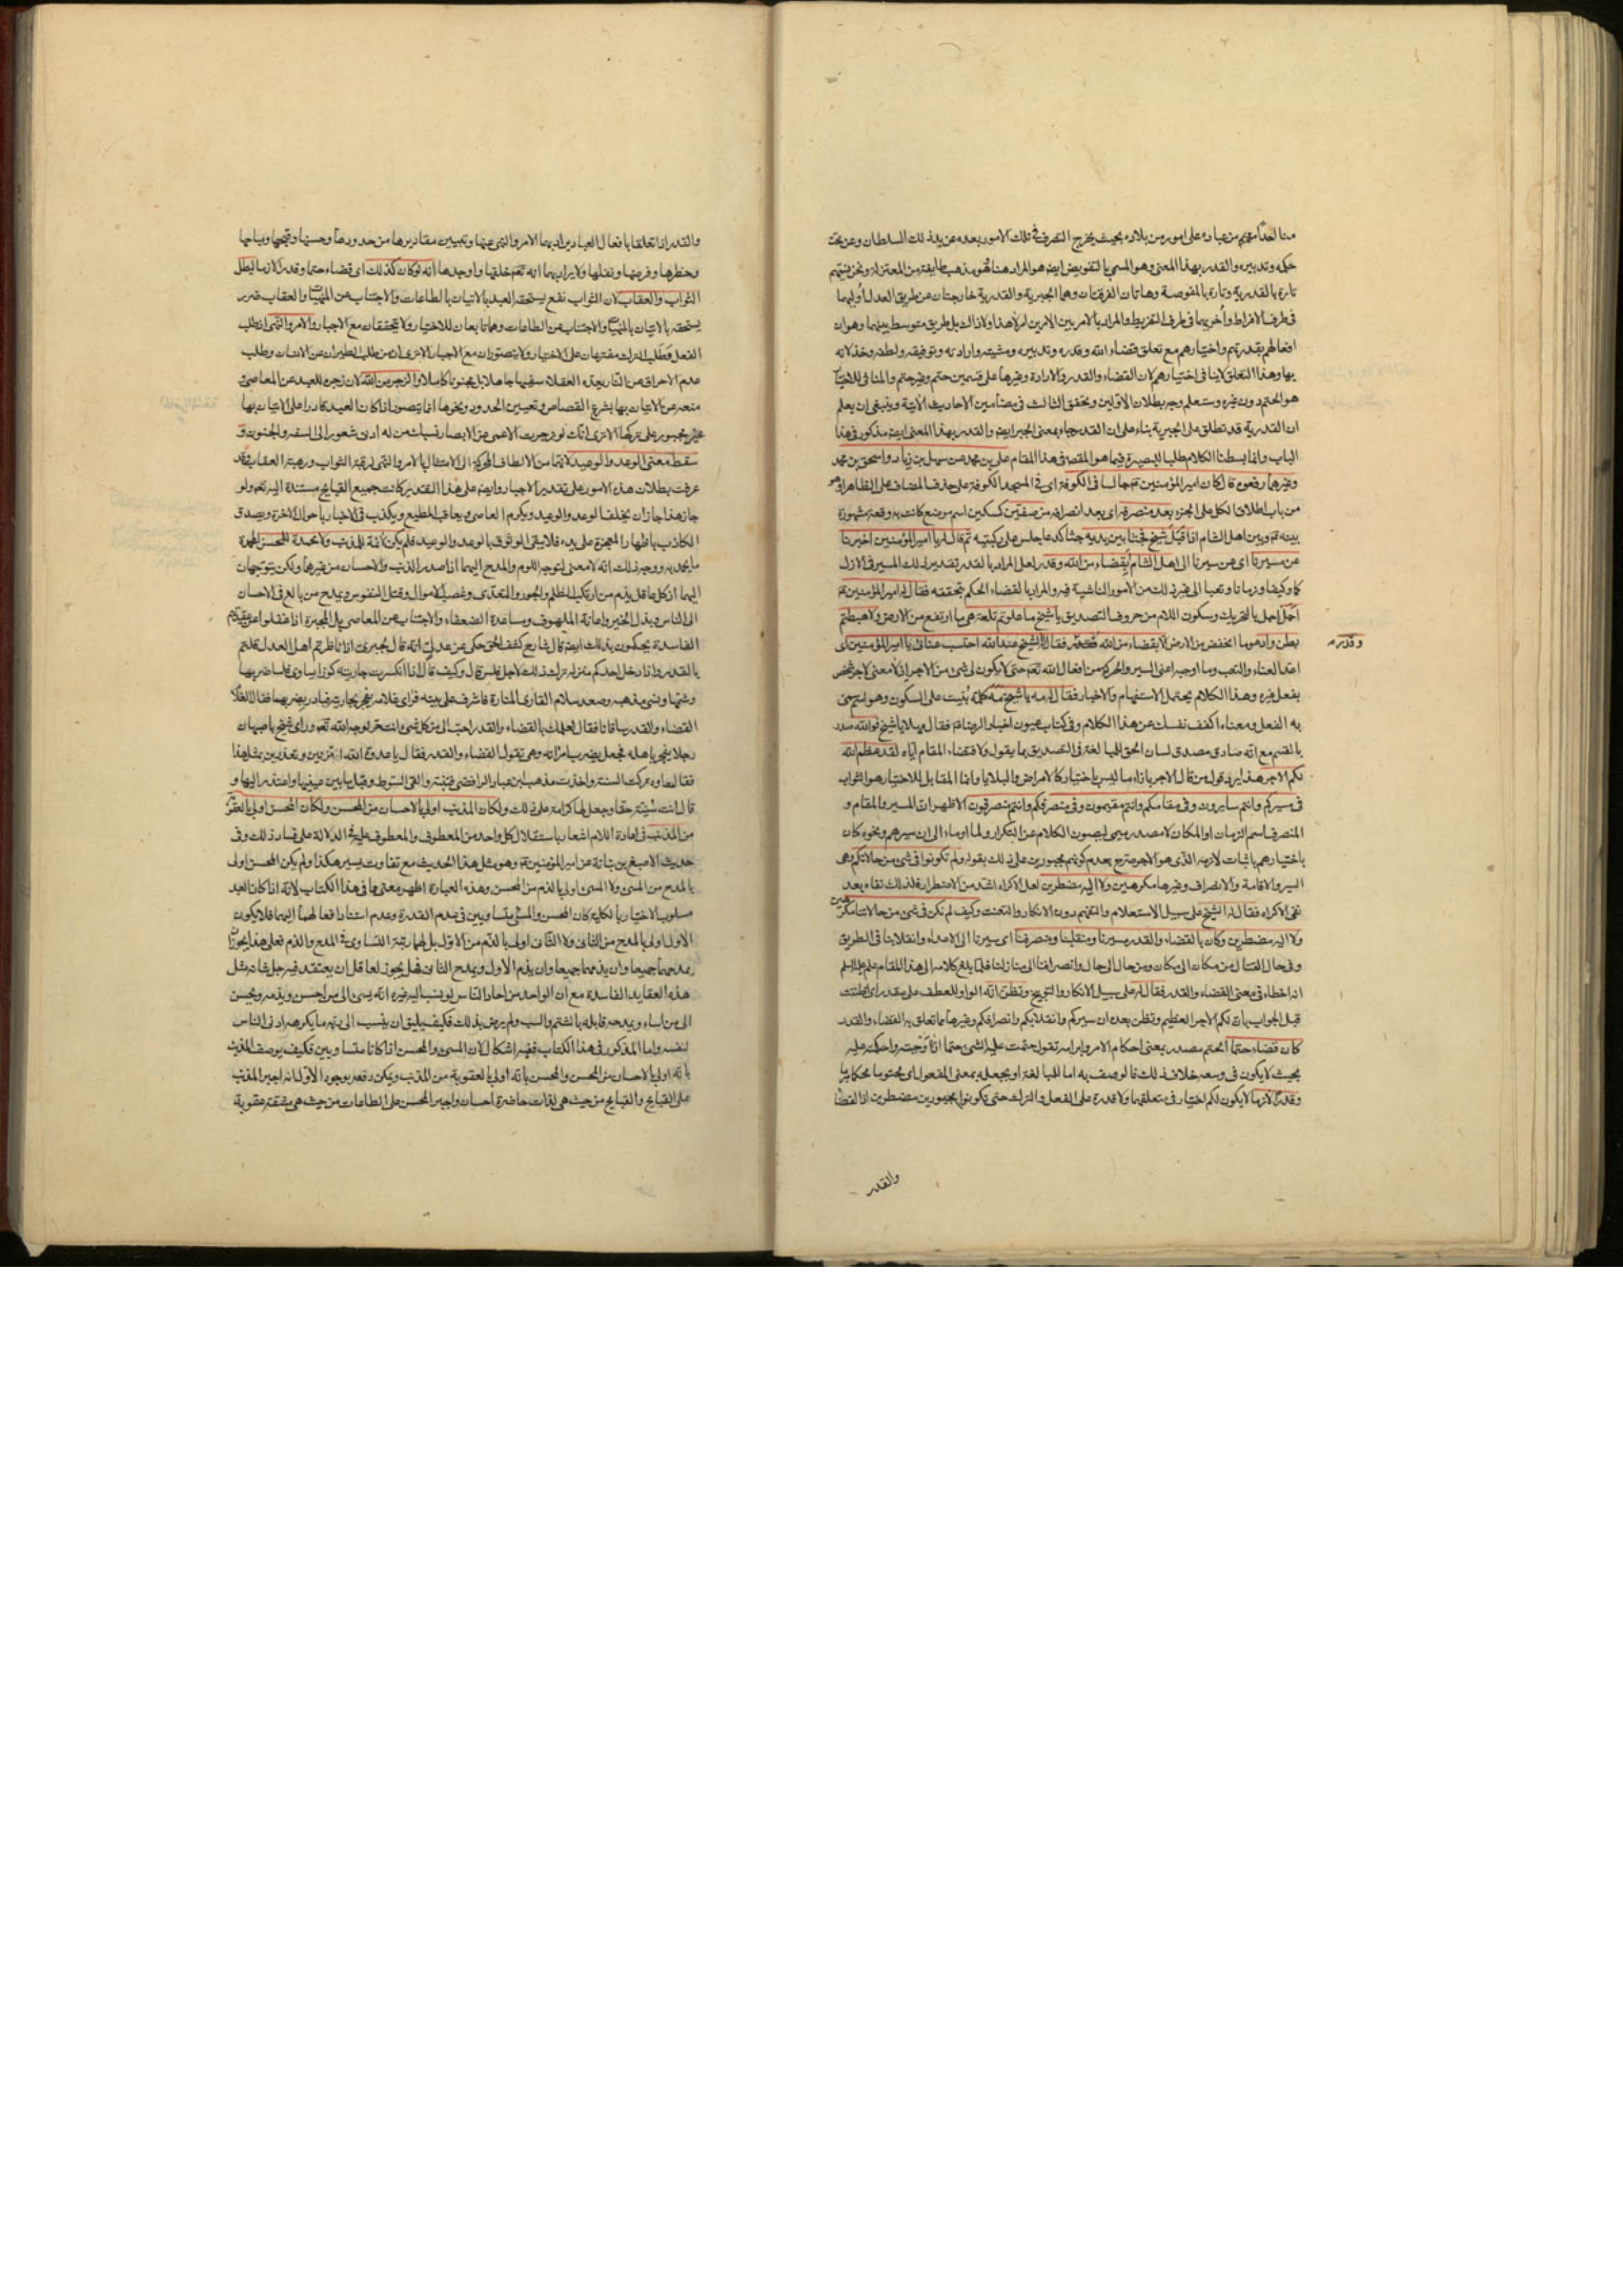 منا احدا منهم من عباده على امور من بلاده بحيث يخرج التصرف في تلك الامور بعده عن يد ذلك السلطان وعن تحت
حكمه وتدبيره والقدر بهذا المعنى وهو المسمى بالتفويض ايضا هو المراد هنا فهو مذهب طايفة من المعتزلة ونحن نسميهم
تارة بالقدرية وتارة بالمفوضة وهاتان الفرقتان وهما الجبرية والقدرية خارجتان عن طريق العدل اوليهما
في طرف الافراط واخريهما في طرف التفريط والمراد بالامر بين الامرين امر لا هذا ولا ذاك بل طريق متوسط بينهما وهو ان
افعالهم بقدرتهم واختيارهم مع تعلق قضاء الله وقدره وتدبيره ومشيته وارادته وتوفيقه ولطفه وخذلانه
بها وهذا التعلق لا ينافي اختيارهم لان القضاء والقدر والارادة وغيرها على قسمين حتم وغير حتم والمنافي للاختيار
هو الحتم دون غيره وستعلم وجه بطلان الاولين وتحقق الثالث في مضامين الاحاديث الآتية وينبغي ان يعلم
ان القدرية قد تطلق على الجبرية بناء على ان القدر جاء بمعنى الجبر ايضا والقدر بهذا المعنى ايضا مذكور في هذا
الباب وانما بسطنا الكلام طلبا للبصيرة فيما هو المقصد في هذا المقام علي بن محمد عن سهل بن زياد واسحق بن محمد
وغيرهما رفعوه قال كان امير المؤمنين ع جالسا في الكوفة اي في المسجد الكوفة على حذف المضاف على الظاهر او هو
من باب اطلاق الكل على الجزء بعد منصرفه اي بعد انصرافه من صفين كسكين اسم موضع كانت به وقعة مشهورة
بينه ع وبين اهل الشام اذا قبل شيخ فجثا بين يديه جثا كدعا جلس على ركبتيه ثم قال له يا امير المؤمنين اخبرنا
عن مسيرنا اي عن سيرنا الى اهل الشام بقضاء من الله وقدر لعل المراد بالقدر تقدير ذلك المسير في الازل
كما وكيفا وزمانا وتعبا الى غير ذلك من الامور الناشية فيه والمراد بالقضاء الحكم بتحققه فقال له امير المؤمنين ع
اجل اجل بالتحريك وسكون اللام من حروف التصديق يا شيخ ما علوتم تلعة هي ما ارتفع من الارض ولا هبطتم
بطن واد هو ما انخفض من الارض الا بقضاء من الله فقال له الشيخ عند الله احتسب عنائي يا امير المؤمنين اي
وقدر
اعد العناء والتعب وما اوجبه اعني السير والحركة من افعال الله تعالى حتى لا يكون لي شيء من الاجر اذ لا معنى لاجر شخص
بفعل غيره وهذا الكلام يحتمل الاستفهام والاخبار فقال له مه يا شيخ مه كلمة بنيت على السكون وهو اسم سمي
به الفعل ومعناه اكفف نفسك عن هذا الكلام وفي كتاب عيون اخبار الرضا ع فقال مهلا يا شيخ فوالله صدر
بالقسم مع انه صادق مصدق لسان الحق للمبالغة في التصديق بما يقول ولاقتضاء المقام اياه لقد عظم الله
لكم الاجر هذا يرد قول من قال الاجر بازاء ما ليس باختيار كالامراض والبلايا وانما المقابل للاختيار هو الثواب
في مسيركم وانتم سايرون وفي مقامكم وانتم مقيمون وفي منصرفكم وانتم منصرفون الاظهر ان المسير والمقام و
المنصرف اسم الزمان او المكان لا مصدر ميمي ليصون الكلام عن التكرار ولما اوماء الى ان سيرهم ونحوه كان
باختيارهم باثبات لازمه الذي هو الاجر صرح بعدم كونهم مجبورين على ذلك بقوله ولم تكونوا في شيء من حالاتكم وهي
السير والاقامة والانصراف وغيرها مكرهين ولا اليه مضطرين لعل الاكراه اشد من الاضطرار فلذلك نفاه بعد
نفي الاكراه فقال له الشيخ على سبيل الاستعلام والتفهم دون الانكار والتعنت وكيف لم نكن في شيء من حالاتنا مكرهين
ولا اليه مضطرين وكان بالقضاء والقدر مسيرنا ومنقلبنا ومنصرفنا اي سيرنا الى الاعداء وانقلابنا في الطريق
وفي حال القتال من مكان الى مكان ومن حال الى حال وانصرافنا الى منازلنا فلما بلغ كلامه الى هذا المقام علم عليه السلم
انه اخطاء في معنى القضاء والقدر فقال له على سبيل الانكار والتوبيخ وتظن انه الواو للعطف على مقدر اي اظننت
قبل الجواب بان لكم الاجر العظيم وتظن بعده ان سيركم وانقلابكم وانصرافكم وغيرها مما تعلق به القضاء والقدر
كان قضاء حتما الحتم مصدر بمعنى احكام الامر وابرامه تقول حتمت عليه الشيء حتما اذا اوجبته واحكمته عليه
بحيث لا يكون في وسعه خلاف ذلك فالوصف به اما للمبالغة او بجعله بمعنى المفعول اي محتوما محكما مبرما
وقدرا لازما لا يكون لكم اختيار في متعلقهما ولا قدرة على الفعل والترك حتى تكونوا مجبورين مضطرين اذ القضاء
والقدر
والقدر اذا تعلقا بافعال العباد يراد بهما الامر والنهي عنها وتبيين مقاديرها من حدودها وحسنها وقبحها ومباحها
وحظرها وفرضها ونفلها ولا يراد بهما انه تعالى خلقها واوجدها انه لو كان كذلك اي قضاء حتما وقدرا لازما لبطل
الثواب والعقاب لان الثواب نفع يستحقه العبد بالاتيان بالطاعات والاجتناب عن المنهيات والعقاب ضرر
يستحقه بالاتيان بالمنهيات والاجتناب عن الطاعات وهما تابعان للاختيار ولا يتحققان مع الاجبار والامر والنهي اذ طلب
الفعل وطلب الترك متفرعان على الاختيار ولا يتصوران مع الاجبار الا ترى ان من طلب الطيران عن الانسان وطلب
عدم الاحراق عن النار يعده العقلاء سفيها جاهلا بل مجنونا كاملا والزجر من الله لان زجره للعبد عن المعاصي و
منعه عن الاتيان بها بشرع القصاص وتعيين الحدود ونحوها انما يتصور اذا كان العبد قادرا على الاتيان بها
غير مجبور على تركها الا ترى انك لو زجرت الاعمى عن الابصار نسبك من له ادنى شعور الى السفه والجنون و
سقط معنى الوعد والوعيد لانهما من الالطاف المحركة الى الامتثال بالامر والنهي لرغبة الثواب ورهبة العقاب وقد
عرفت بطلان هذه الامور على تقدير الاجبار وايضا على هذا التقدير كانت جميع القبايح مستندة اليه تعالى ولو
جاز هذا جاز ان يخلف الوعد والوعيد ويكرم العاصي ويعاقب المطيع ويكذب في الاخبار باحوال الاخرة ويصدق
الكاذب باظهار المعجزة على يده فلا يبقى الوثوق بالوعد والوعيد فلم يكن لائمة للمذنب ولا محمدة للمحسن المحمدة
ما يحمد به ووجه ذلك انه لا معنى لتوجه اللوم والمدح اليهما اذا صدر الذنب والاحسان من غيرهما ولكن يتوجهان
اليهما اذ كل عاقل يذم من ارتكب الظلم والجور والتعدي وغصب الاموال وقتل النفوس ويمدح من بالغ في الاحسان
الى الناس وبذل الخير واعانة الملهوف ومساعدة الضعفاء والاجتناب عن المعاصي بل المجبرة اذا غفلوا عن عقايدهم
الفاسدة يحكمون بذلك ايضا قال شارح كشف الحق حكي عن عدلي انه قال لمجبري اذا ناظرتم اهل العدل قلتم
بالقدر واذا دخل احدكم منزله ترك ذلك لاجل فلس قال وكيف قال اذا انكسرت جاريته كوزا يساوي فلسا ضربها
وشتمها ونسي مذهبه وصعد سلام القاري المنارة فاشرف على بيته فراى غلامه يفجر بجاريته فبادر بضربهما فقال الغلام
القضاء والقدر ساقانا فقال لعلمك بالقضاء والقدر احب الي من كل شيء وانت حر لوجه الله تعالى وراى شيخ باصبهان
رجلا يفجر باهله فجعل يضرب امراته وهي تقول القضاء والقدر فقال يا عدوة الله اتزنين وتعتذرين بمثل هذا
فقالت اوه تركت السنة واخذت مذهب ابن عباد الرافضي فتنبه والقى السوط وقبل ما بين عينيها واعتذر اليها و
قال انت سنية حقا وجعل لها كرامة على ذلك ولكان المذنب اولى بالاحسان من المحسن ولكان المحسن اولى بالعقوبة
من المذنب في اعادة اللام اشعار باستقلال كل واحد من المعطوف والمعطوف عليه في الدلالة على فساد ذلك وفي
حديث الاصبغ بن نباتة عن امير المؤمنين ع وهو مثل هذا الحديث مع تفاوت يسير هكذا ولم يكن المحسن اولى
بالمدح من المسيء ولا المسيء اولى بالذم من المحسن وهذه العبارة اظهر معنى مما في هذا الكتاب لانه اذا كان العبد
مسلوب الاختيار بالكلية كان المحسن والمسيء متساويين في عدم القدرة وعدم استناد افعالهما اليهما فلا يكون
الاول اولى بالمدح من الثاني ولا الثاني اولى بالذم من الاول بل لهما رتبة التساوي في المدح والذم فعلى هذا يجوز ان
يمدحهما جميعا وان يذمهما جميعا وان يذم الاول ويمدح الثاني فهل يجوز لعاقل ان يعتقد فيه جل شانه مثل
هذه العقايد الفاسدة مع ان الواحد من احاد الناس لو نسب اليه غيره انه يسيء الى من احسن ويذمه ويحسن
الى من اساء ويمدحه قابله بالشتم والسب ولم يرض بذلك فكيف يليق ان ينسب الى ربه ما يكرهه ادنى الناس
لنفسه واما المذكور في هذا الكتاب ففيه اشكال لان المسيء والمحسن اذا كانا متساويين فكيف يوصف المذنب
بانه اولى بالاحسان من المحسن والمحسن بانه اولى بالعقوبة من المذنب ويمكن دفعه بوجوه الاول انه اجبر المذنب
على القبايح والقبايح من حيث هي لذات حاضرة احسان واجبر المحسن على الطاعات من حيث هي مشقة عقوبة